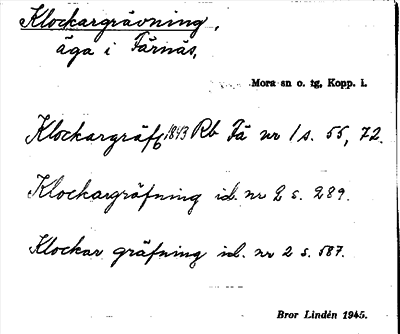 Klockargrävning,
äga i Färnäs.
Mora sn o. tg, Kopp. l.
Klockargräfg 1843 Rb Fä nr 1 s. 55, 72.
Klockargräfning id. nr 2 s. 289.
Klockar gräfning id. nr 2 s. 587.
Bror Lindén 1945.